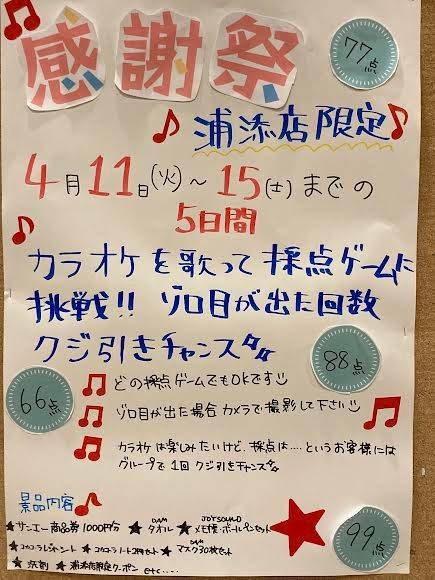 感謝祭
77点
浦添店限定
4月11日(火)～15(土)までの
5日間
カラオケを歌って採点ゲームに
挑戦!! ゾロ目が出た回数
クジ引きチャンス
88点
66点
どの採点ゲームでもOKです
ゾロ目が出た場合カメラで撮影して下さい
カラオケは楽しみたいけど、採点は....というお客様には
グループで1回クジ引きチャンス
景品内容
★サンエー商品券1000円分 ★DAMタオル ★JOYSOUNDメモ帳・ボールペンセット
★コカコーラ ★コカコーラノート2冊セット ★DAMマスク30枚セット
★洗剤 ★浦添店限定クーポン etc.....
99点